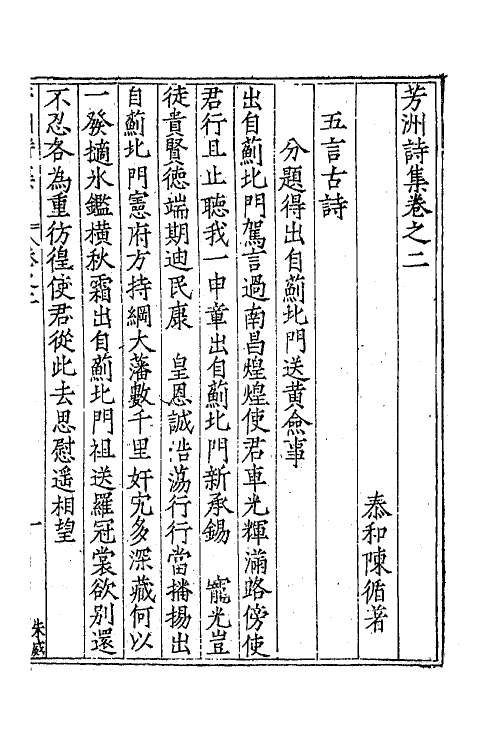 芳洲詩集卷之二
泰和陳循著
五言古詩
分題得出自薊北門送黃僉事
出自薊北門駕言過南昌煌煌使君車光輝滿路傍使
君行且止聽我一申章出自薊北門新承錫　寵光豈
徒貴賢德端期迪民康　皇恩誠浩蕩行行當播揚出
自薊北門憲府方持綱大藩數千里奸宄多深藏何以
一發擿氷鑑橫秋霜出自薊北門祖送羅冠裳欲別還
不忍各為重彷徨使君從此去思慰遥相望
一
朱威